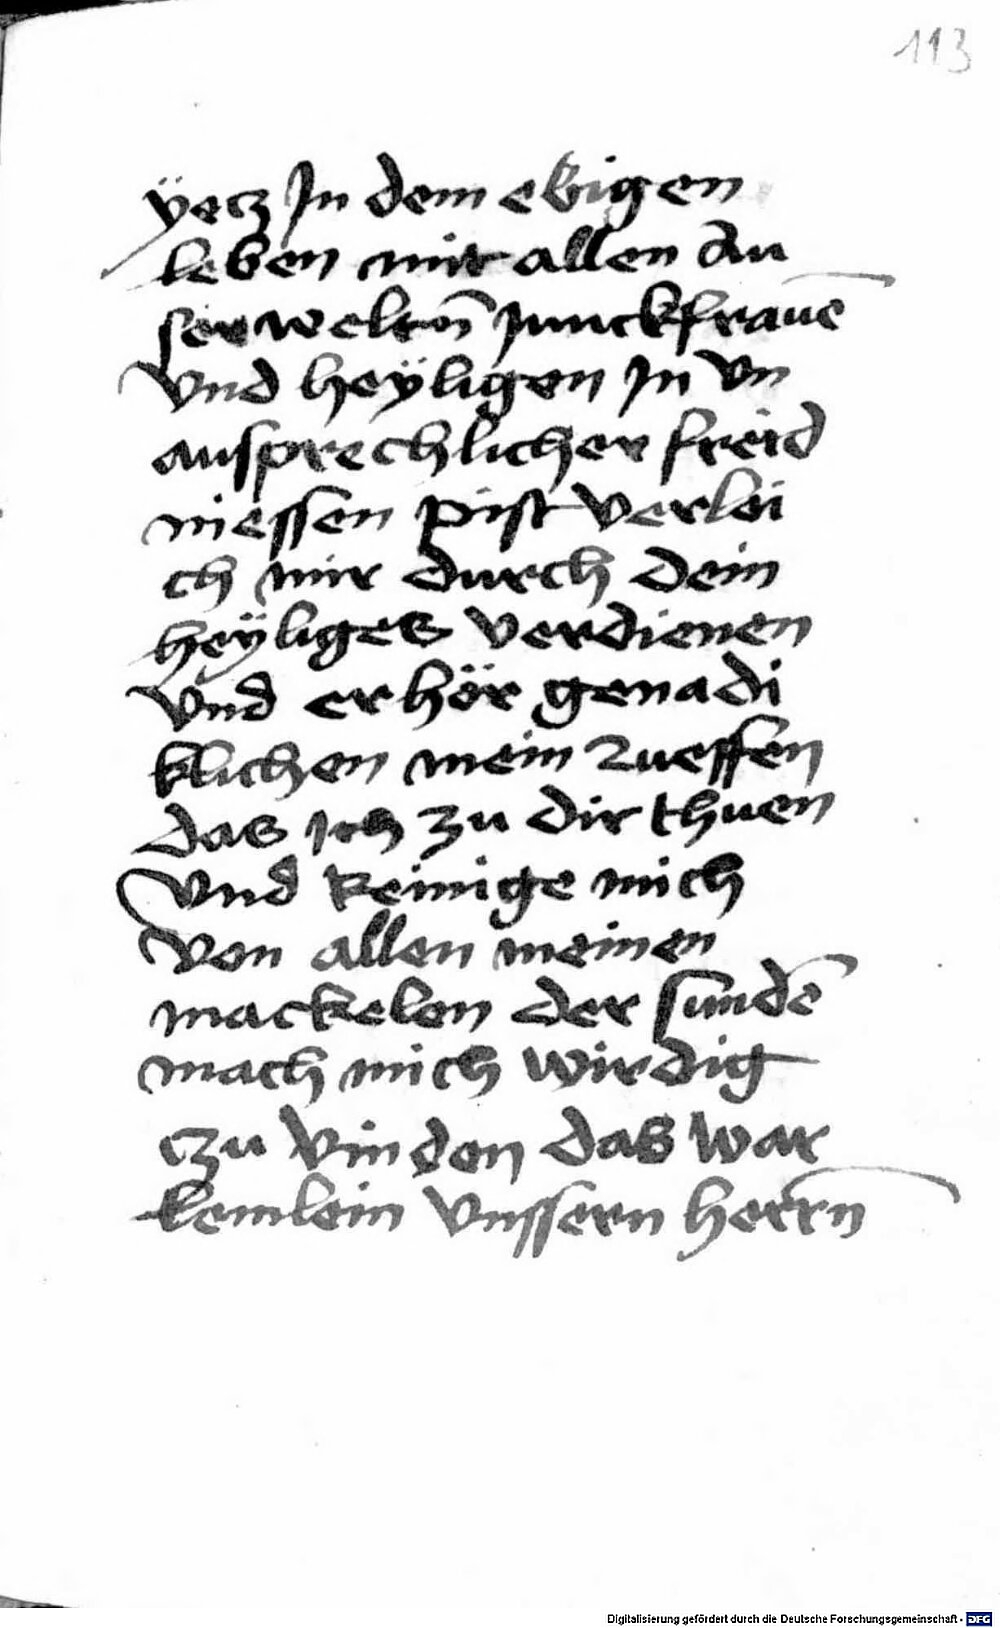 113
ÿecz In dem ebigen
leben mit allen au
serweltn̄ junckfrauē
vnd heÿligen In vn
aussprechlicher freid
niessen pist verlei
ch mir durch dein
heÿliges verdienen
vnd erhör genadi
klichen mein Rueffen
das Ich zu dir thuen
vnd Reinige mich
von allen meinen
mackelen der sundē
mach mich wirdig
czu vinden das war
kemlein vnssern herrn̄
Digitalisierung gefördert durch die Deutsche Forschungsgemeinschaft - DFG